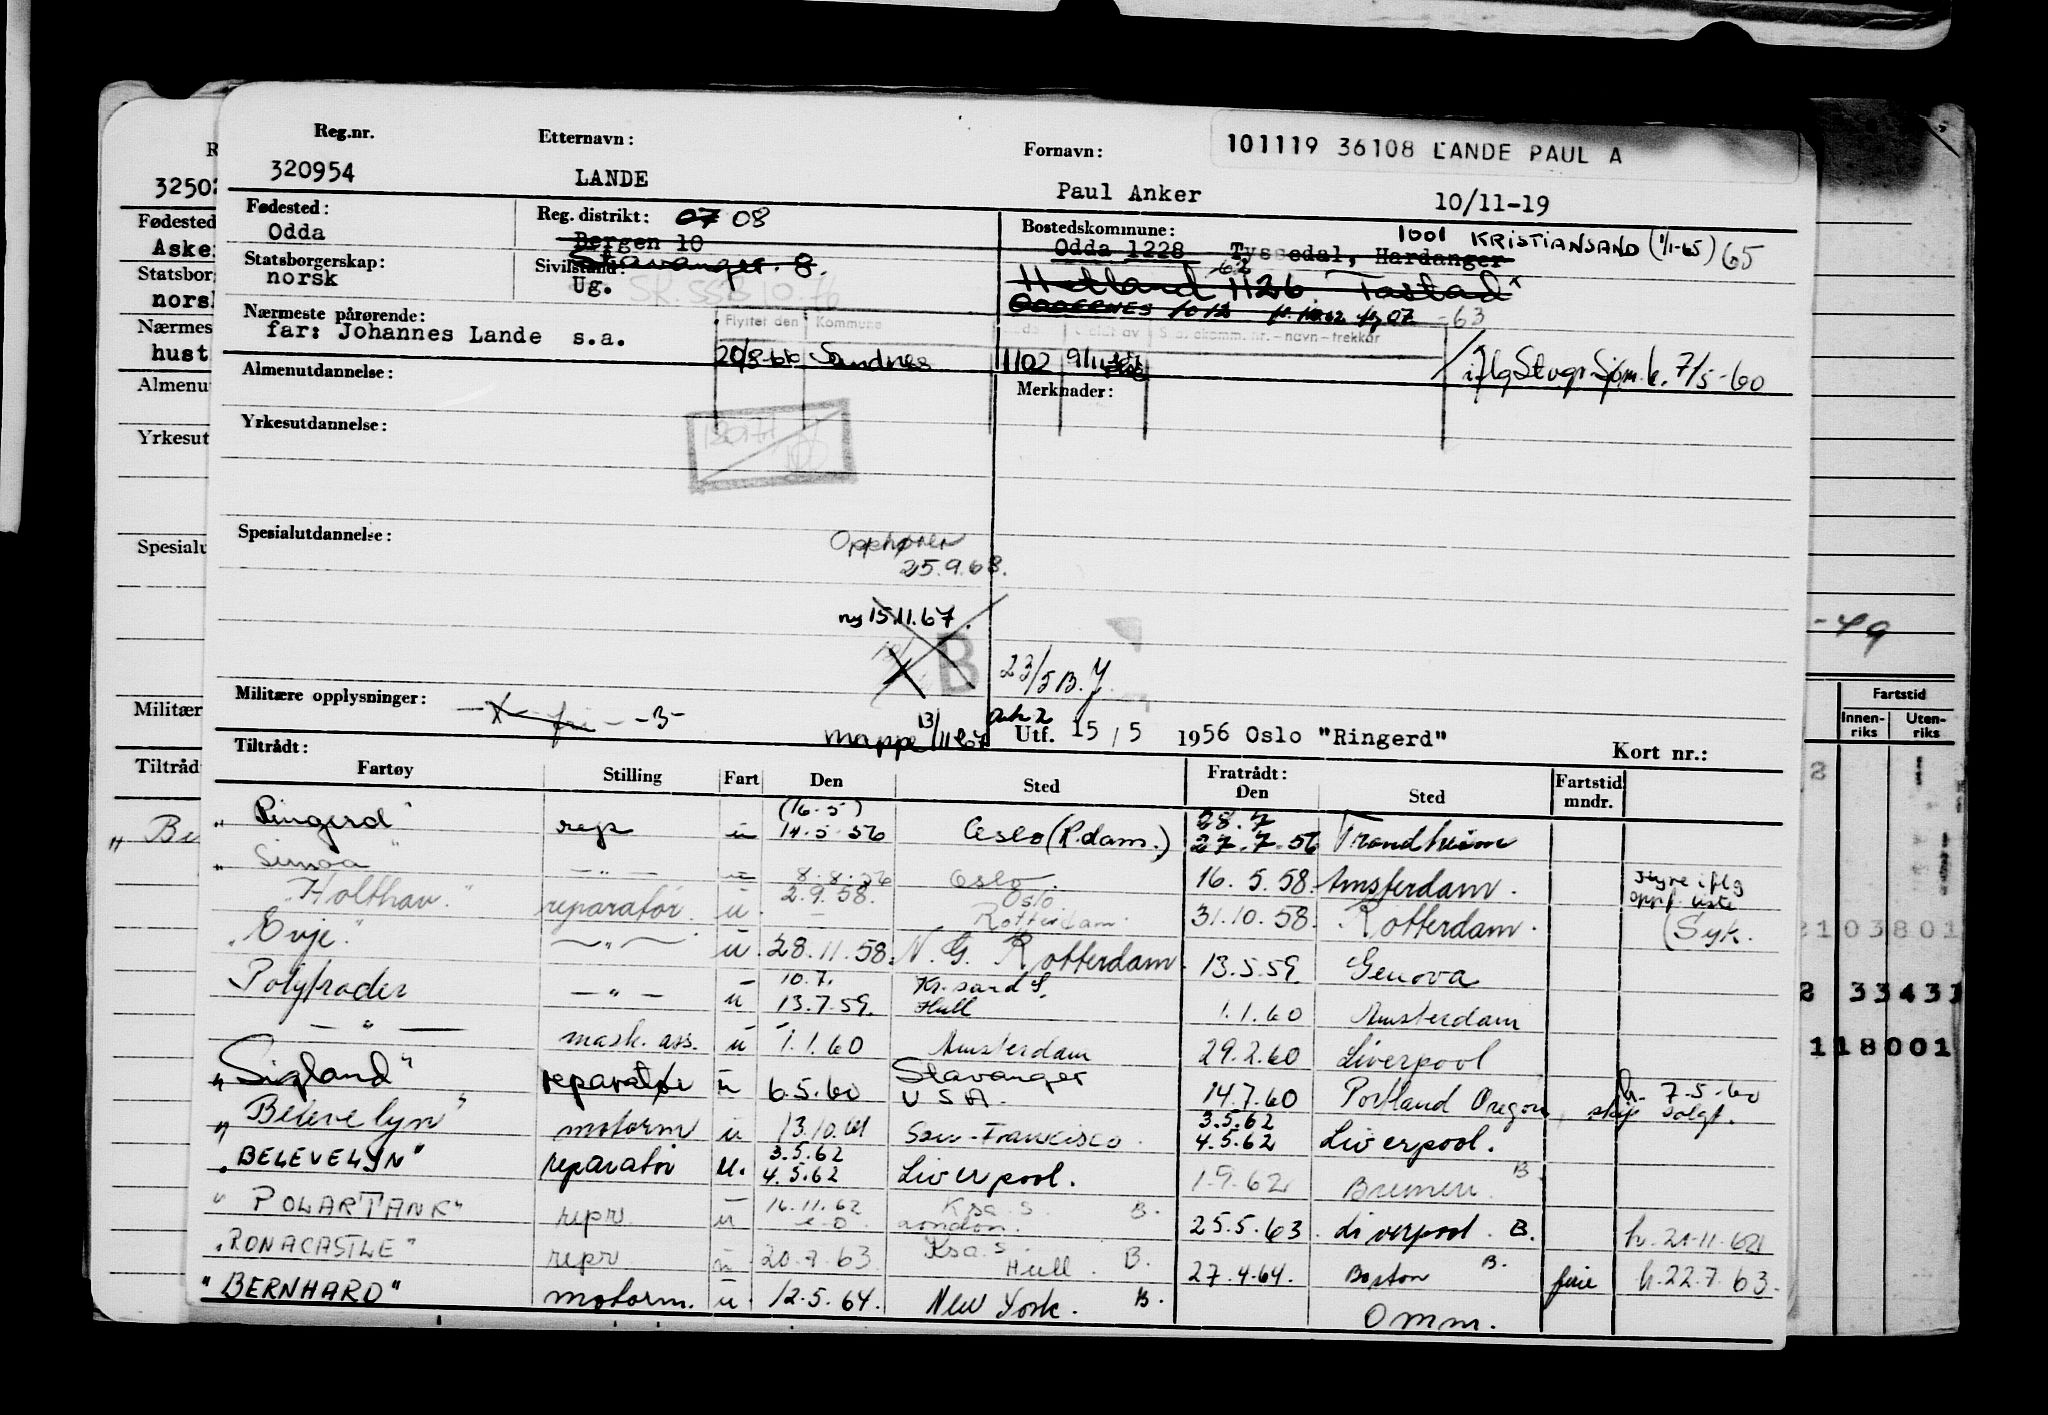 Reg.nr.
Etternavn:
Fornavn:
101119 36108 LANDE PAUL A
320954
LANDE
Paul Anker
10/11-19
Fødested:
Odda
Reg. distrikt: 07 08
Bergen 10
Stavanger. 8.
Bostedskommune:
1001 KRISTIANSAND (1/1-65) 65
Odda 1228 Tyssedal, Hardanger
62
Hetland 1126 Tastad
ODDERNES 1012
-63
Statsborgerskap:
norsk
Sivilstand:
Ug.
SR. SSB 10.76
Nærmeste pårørende:
far: Johannes Lande s.a.
Flyttet den
Kommune
20/8-66 Sandnes
1102
S a. skomm. nr.-navn-trekkår
iflg Stvgr. Sjøm.k. 7/5-60
Almenutdannelse:
Merknader:
Yrkesutdannelse:
Spesialutdannelse:
Opphører
25.9.68.
ny 15.11.67.
B
23/5 B.J.
Militære opplysninger:
fri -B-
mappe 13/11-67
Utf. 15/5 1956 Oslo "Ringerd"
Kort nr.:
Tiltrådt:
Fartøy
Stilling
Fart
Den
Sted
Fratrådt:
Den
Sted
Fartstid
mndr.
"Ringerd" rep u (16.5) 14.5.56 Oslo (R.dam.) 28.7 27.7.56 Trondheim
"Simoa" -"- u 8.8.56 Oslo. 16.5.58. Amsterdam.
Hyre iflg
oppg. liste
"Holthav." reparatør. u. 2.9.58. Oslo. Rotterdam. 31.10.58. Rotterdam. (Syk.
"Evje." -"- u. 28.11.58. N. G. Rotterdam. 13.5.59. Genova
Polytrader -"- u 10.7. 13.7.59. Kr.sand S. Hull 1.1.60 Amsterdam
-"- mask. ass. u 1.1.60 Amsterdam 29.2.60 Liverpool
"Sigland" reparatør u 6.5.60 Stavanger USA. 14.7.60 Portland Oregon, h. 7.5.60
skip solgt.
"Belevelyn" motorm u 13.10.61 San-Francisco. 3.5.62 4.5.62 Liverpool.
"BELEVELYN" reparatør u. 3.5.62 4.5.62 Liverpool. 1.9.62 Bremen. B.
"POLARTANK" repr. u 16.11.62 Ksa. S. London. B. 25.5.63. Liverpool. B. h. 21.11.62
"RONACASTLE" repr. u 20.7.63. Ksa. S. Hull. B. 27.4.64. Boston B. ferie h. 22.7.63.
"BERNHARD" motorm. u 12.5.64. New York. B. Omm.
R
32502
Fødested
Aske
Statsbor
nors
Nærmes
hust
Almenu
Yrkesut
Spesialu
Militær
Tiltråd
" Be
-49
Fartstid
Innen-
riks
Uten-
riks
2 1
21 03801
2 33431
118001